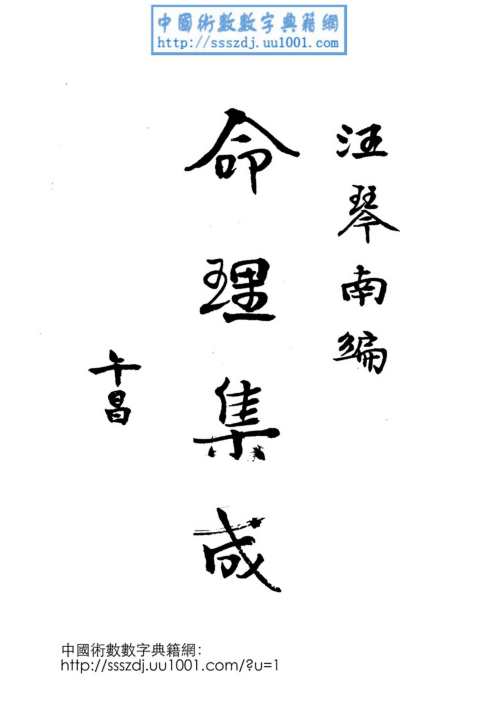 中國術數數字典籍網
http://ssszdj.uu1001.com/
汪琴南编
命理集成
午昌
中國術數數字典籍網：
http://ssszdj.uu1001.com/?u=1